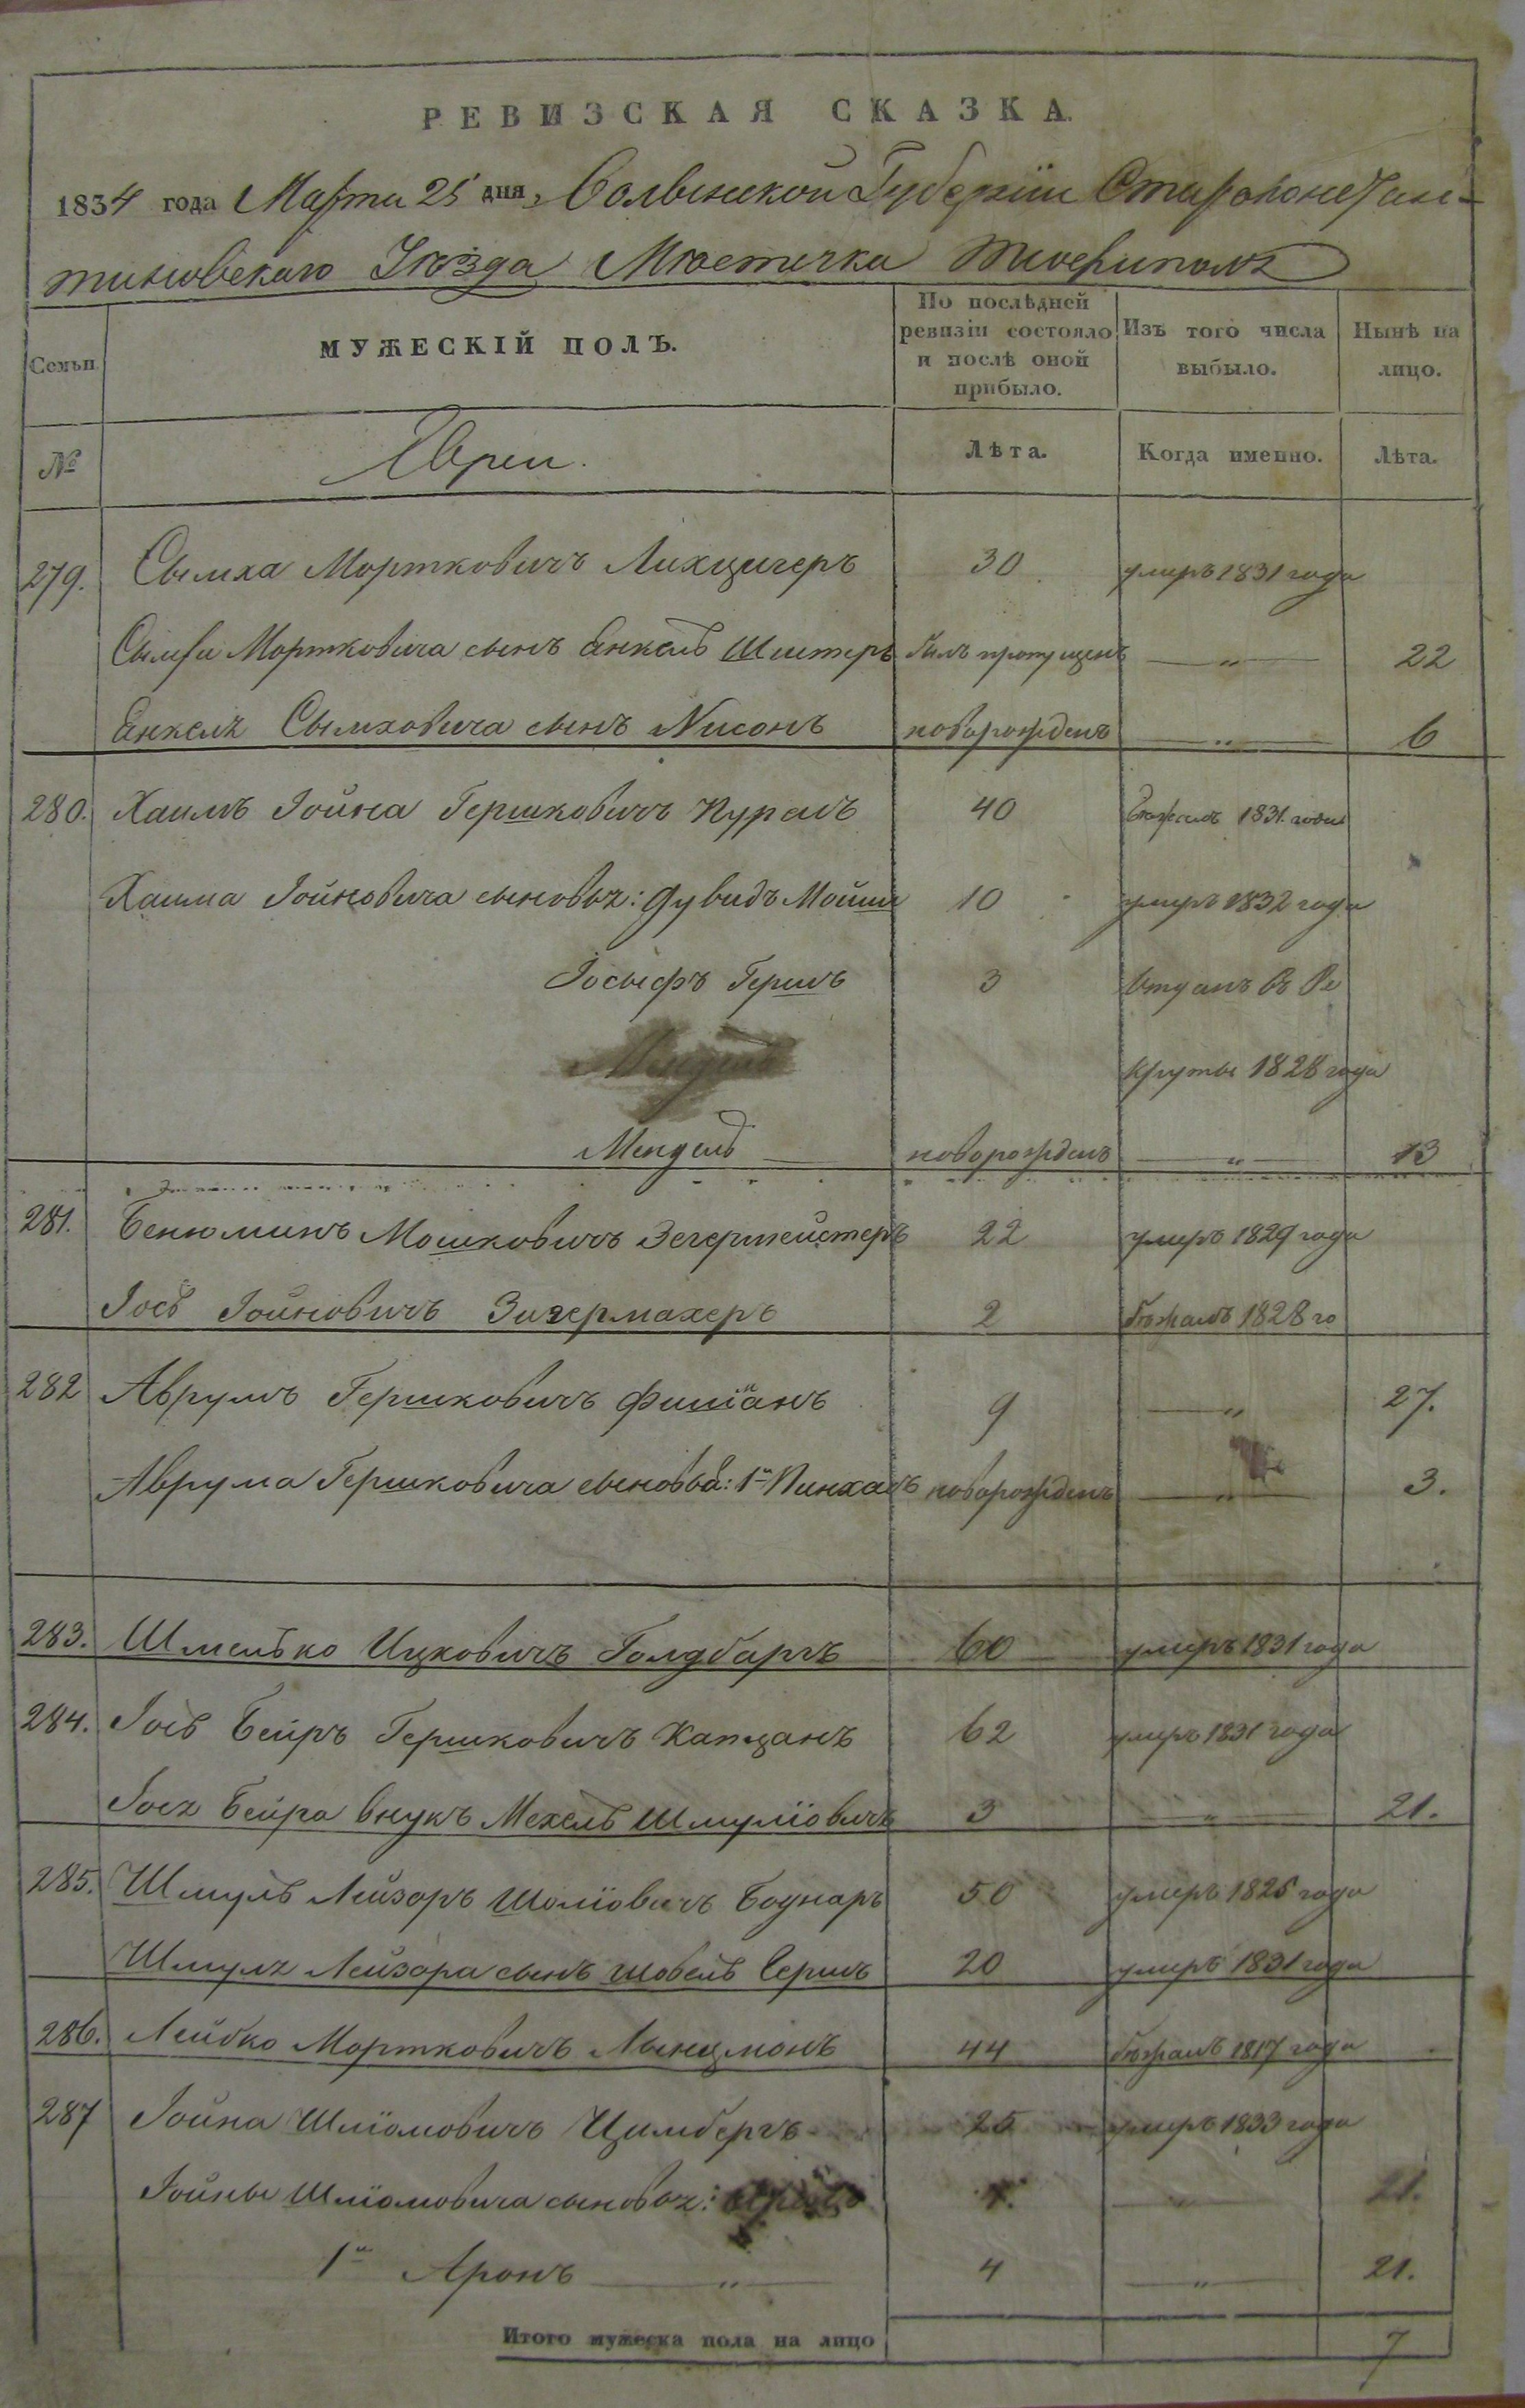 РЕВИЗСКАЯ СКАЗКА.
1834 года Марта 25 дня, Волынской Губернїи Староконстан-
тиновскаго Уѣзда Мѣстечка
Семьи
МУЖЕСКІЙ ПОЛЪ.
По послѣдней ревизіи состояло и послѣ оной прибыло.
Изъ того числа выбыло.
Нынѣ на лицо.
№ Евреи. Лѣта. Когда именно. Лѣта.
279. Сымха Мортковичъ 30 умеръ 1831 года
Мортковича сынъ Енкель был пропущенъ — „ — 22
Енкеля Сымховича сынъ Нисонъ новорожденъ — „ — 6
280. Хаимъ Іойна Гершковичъ 40 бѣжалъ 1831. года
Хаима Іойновича сыновья: Дувидъ Мошко 10 умеръ 1832 года
Іосыфъ Гершъ 3 Отданъ въ Ре
круты 1828 года
Мендель — новорожденъ — „ — 13
281. Бенюминъ Мошковичъ Зегермейстеръ 22 умеръ 1829 года
Іось Іойновичъ Зигермахеръ 2 бѣжалъ 1828 го
282 Аврумъ Гершковичъ Фишманъ 9 — „ — 27.
Аврума Гершковича сыновья: 1й Пинхасъ новорожденъ — „ — 3.
283. Шмелько Ицковичъ Голдбаргъ 60 умеръ 1831 года
284. Іось Бейръ Гершковичъ Капцанъ 62 умеръ 1831 года
Іося Бейра внукъ Мехель Шмулїовичъ 3 — „ — 21.
285. Шмуль Лейзоръ Шолїовичъ Боднаръ 50 умеръ 1825 года
Шмуля Лейзора сынъ Шовель 20 умеръ 1831 года
286. Лейбко Мортковичъ 44 бѣжалъ 1817 года
287 Іойна Шлїомовичъ Цимбергъ 25 умеръ 1833 года
Іойны Шлїомовича сыновья: 4. — „ — 21.
1й Аронъ — „ — 4 — „ — 21.
Итого мужеска пола на лицо 7